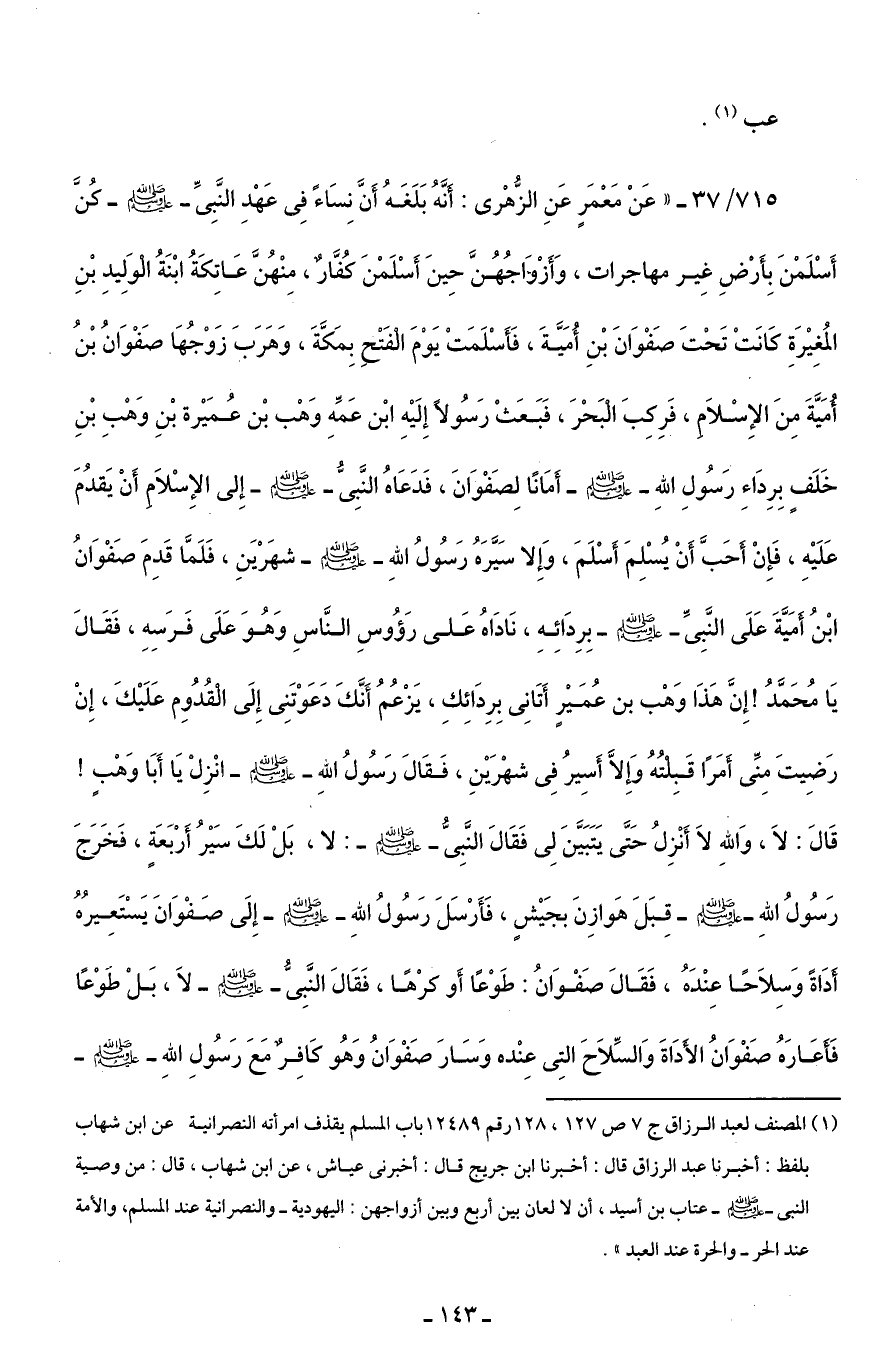 عب (١) .
٧١٥/ ٣٧ ـ « عَنْ مَعْمَرٍ عَنِ الزُّهْرِى : أَنَّهُ بَلَغَهُ أَنَّ نِسَاءً فِى عَهْدِ النَّبِىِّ ـ ﷺ ـ كُنَّ
أَسْلَمْنَ بِأَرْضِ غير مهاجرات ، وَأَزْوَاجُهُنَّ حينَ أَسْلَمْنَ كُفَّارٌ ، مِنْهُنَّ عَاتِكَةُ ابْنَةُ الْوَلِيدِ بْنِ
المُغِيْرَةِ كَانَتْ تَحْتَ صَفْوَانَ بْنِ أُمَيَّةَ ، فَأَسْلَمَتْ يَوْمَ الْفَتْحِ بِمَكَّةَ ، وَهَرَبَ زَوْجُهَا صَفْوَانُ بْنُ
أُمَيَّةَ مِنَ الإِسْلاَمِ ، فَرَكِبَ الْبَحْرَ ، فَبَعَثَ رَسُولاً إِلَيْهِ ابْن عَمِّهِ وَهْب بْن عُمَيْرة بْنِ وَهْبِ بْنِ
خَلَفٍ بِرِدَاءِ رَسُولِ اللهِ ـ ﷺ ـ أَمَانًا لِصَفْوَانَ ، فَدَعَاهُ النَّبِىُّ ـ ﷺ ـ إِلى الإِسْلاَمِ أَنْ يَقدُمَ
عَلَيْهِ ، فَإِنْ أَحَبَّ أَنْ يُسْلِمَ أَسْلَمَ ، وَإِلا سَيَّرَهُ رَسُولُ اللهِ ـ ﷺ ـ شهْرَيْنِ ، فَلَمَّا قَدِمَ صَفْوَانُ
ابْنُ أُمَيَّةَ عَلَى النَّبِىِّ ـ ﷺ ـ بِرِدَائِهِ ، نَادَاهُ عَلَى رَؤُوسِ النَّاسِ وَهُوَ عَلَى فَرَسِهِ ، فَقَالَ
يَا مُحَمَّدُ ! إِنَّ هَذَا وَهْب بن عُمَيْرٍ أَتَانِى بِرِدَائِكِ ، يَزْعُمُ أَنَّكَ دَعَوْتَنِى إِلَى الْقُدُومِ عَلَيْكَ ، إِنْ
رَضِيتَ مِنِّى أَمَرًا قَبِلْتُهُ وَإِلاَّ أَسِيرُ فِى شهْرَيْنِ ، فَقَالَ رَسُولُ اللهِ ـ ﷺ ـ انْزِلْ يَا أَبَا وَهْبٍ !
قَالَ : لاَ ، وَاللهِ لاَ أَنْزِلُ حَتَّى يَتَبَيَّنَ لِى فَقَالَ النَّبِىُّ ـ ﷺ ـ : لا ، بَلْ لَكَ سَيْرُ أَرْبَعَةٍ ، فَخَرَجَ
رَسُولُ اللهِ ـ ﷺ ـ قِبَلَ هَوازِنَ بِجَيْشٍ ، فَأَرْسَلَ رَسُولُ اللهِ ـ ﷺ ـ إِلَى صَفْوَانَ يَسْتَعِيرُهُ
أَدَاةً وَسِلاَحًا عِنْدَهُ ، فَقَالَ صَفْوَانُ : طَوْعًا أَو كرْهًا ، فَقَالَ النَّبِىُّ ـ ﷺ ـ لاَ ، بَلْ طَوْعًا
فَأَعَارَهُ صَفْوَانُ الأَدَاةَ وَالسِّلاَحَ التِى عِنْده وَسَارَ صَفْوَانُ وَهُو كَافِرٌ مَعَ رَسُولِ اللهِ ـ ﷺ ـ
(١) المصنف لعبد الرزاق ج ٧ ص ١٢٧ ، ١٢٨ رقم ١٢٤٨٩ باب المسلم يقذف امرأته النصرانية عن ابن شهاب
بلفظ : أخبرنا عبد الرزاق قال : أخبرنا ابن جريج قال : أخبرنى عياش ، عن ابن شهاب ، قال : من وصية
النبى ـ ﷺ ـ عتاب بن أسيد ، أن لا لعان بين أربع وبين أزواجهن : اليهودية ـ والنصرانية عند المسلم، والأمة
عند الحر ـ والحرة عند العبد » .
ـ ١٤٣ ـ